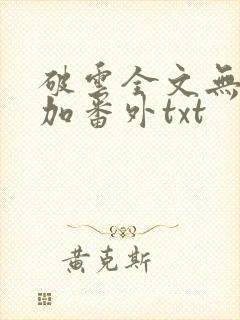 破雲全文無
加番外txt
黃克斯